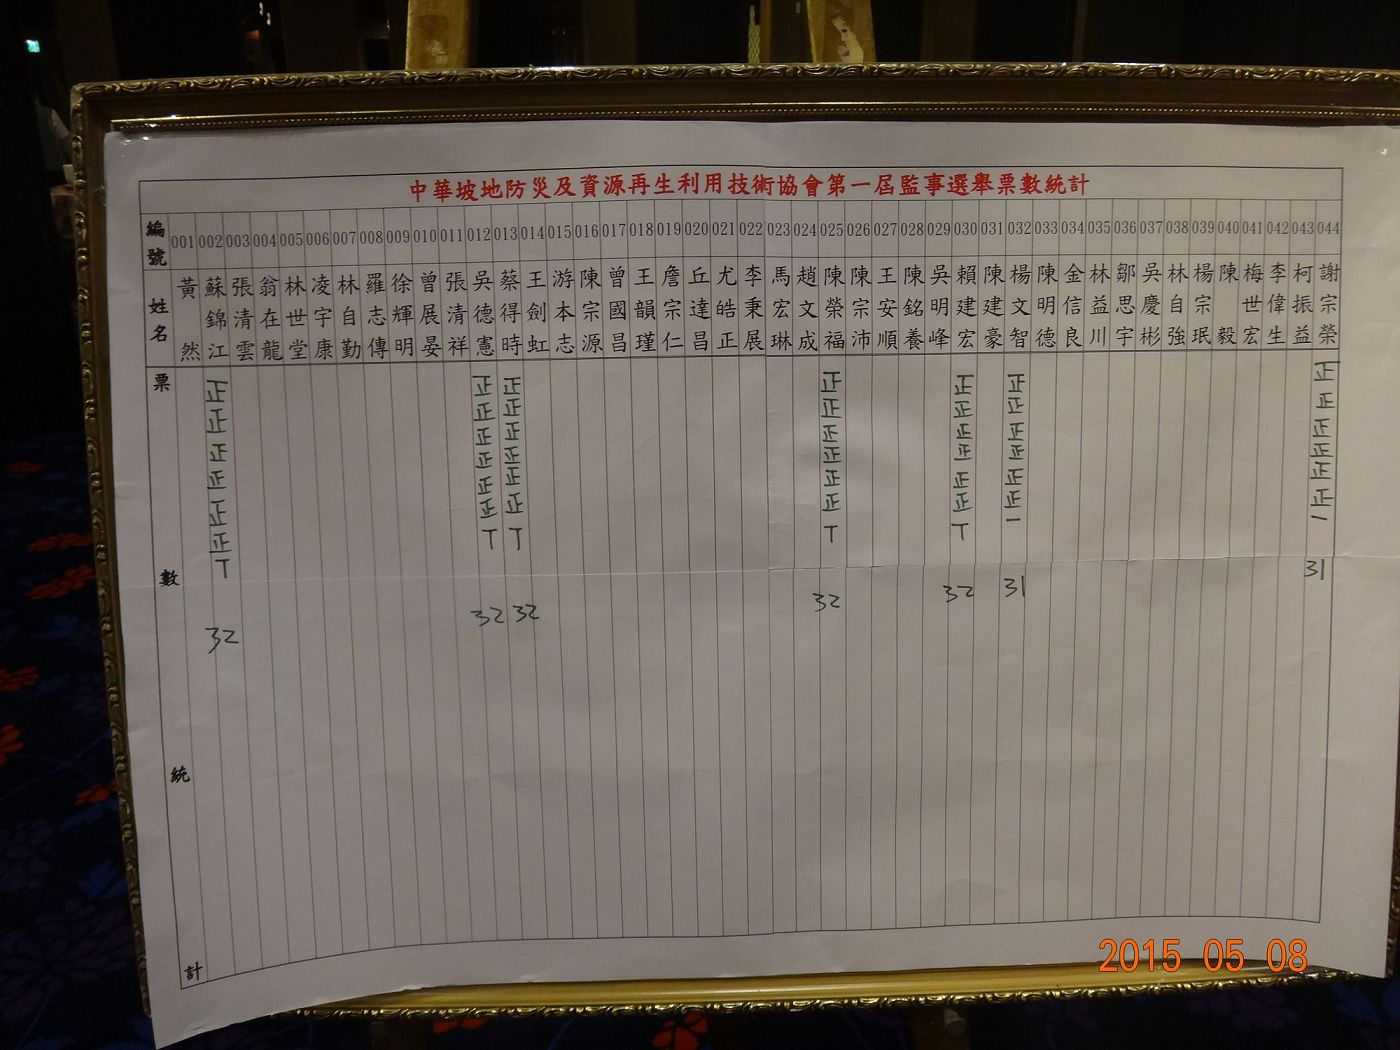 中華坡地防災及資源再生利用技術協會第一屆監事選舉票數統計
編號 001 002 003 004 005 006 007 008 009 010 011 012 013 014 015 016 017 018 019 020 021 022 023 024 025 026 027 028 029 030 031 032 033 034 035 036 037 038 039 040 041 042 043 044
姓名 黃然 蘇錦江 張清雲 翁在龍 林世堂 凌宇康 林自勤 羅志傳 徐輝明 曾展晏 張清祥 吳德憲 蔡得時 王劍虹 游本志 陳宗源 曾國昌 王韻瑾 詹宗仁 丘達昌 尤皓正 李秉展 馬宏琳 趙文成 陳榮福 陳宗沛 王安順 陳銘養 吳明峰 賴建宏 陳建豪 楊文智 陳明德 金信良 林益川 鄒思宇 吳慶彬 林自強 楊宗珉 陳毅 梅世宏 李偉生 柯振益 謝宗榮
票數統計
正正正正正正丅 32
正正正正正正丅 32
正正正正正正丅 32
正正正正正正丅 32
正正正正正正丅 32
正正正正正正一 31
正正正正正正一 31
2015 05 08